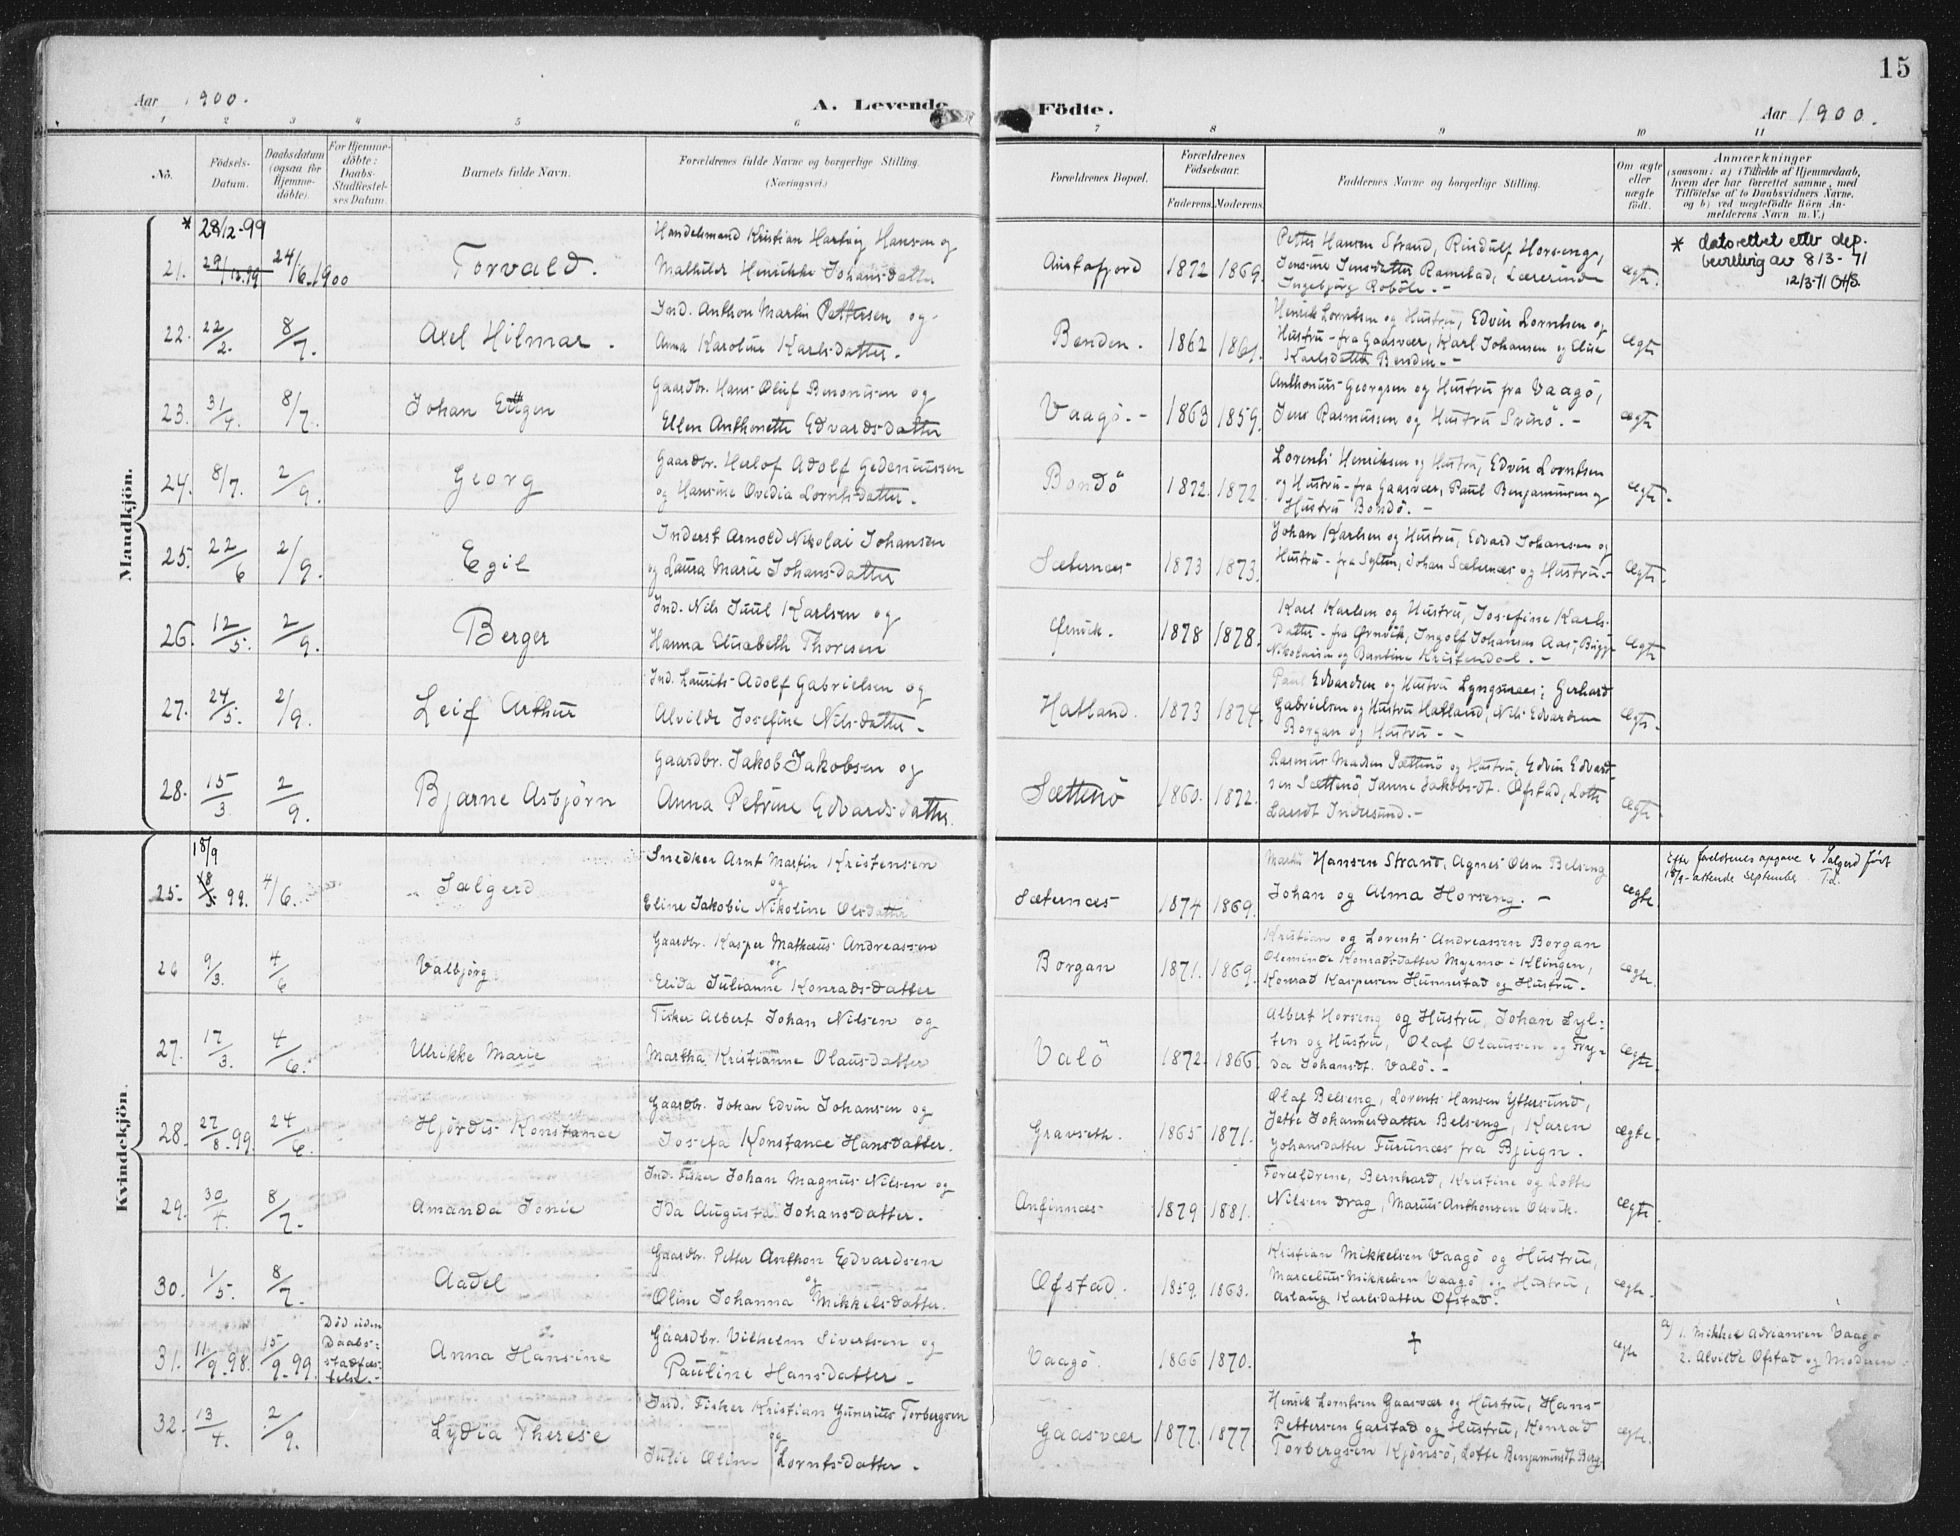 15
Aar 1900.
A. Levende Födte.
Aar 1900.
1 2 3 4 5 6 7 8 9 10 11
No.
Födsels-Datum.
Daabsdatum (ogsaa for Hjemmedöbte).
For Hjemmedöbte: Daabs-Stadfæstelses Datum.
Barnets fulde Navn.
Forældrenes fulde Navne og borgerlige Stilling. (Næringsvei.)
Forældrenes Bopæl.
Forældrenes Födselsaar.
Faderens. Moderens.
Faddernes Navne og borgerlige Stilling.
Om ægte eller uægte födt.
Anmærkninger
(saasom: a) i Tilfælde af Hjemmedaab, hvem der har forrettet samme, med Tilföielse af to Daabsvidners Navne, og b) ved uegtefödte Börn Anmelderens Navn m. V.)
Mandkjön.
* 28/12-99
21. 29/12.99 24/6.1900 Torvald. Handelsmand Kristian Hartvig Hansen og
Mathilde Henrikke Johansdatter
Austafjord 1872 1869. Petter Hansen Strand, Rindulf Horseng,
Jensine Jensdatter Ramstad, Lærerinde
Ingebjörg Roböle. - ægte.
* dato rettet etter dep.
bevilling av 8/3-71
12/3-71 OHS.
22. 22/2. 8/7. Axel Hilmar. Ind. Anthon Martin Pettersen og
Anna Karoline Karlsdatter.
Benden. 1862 1861. Henrik Lorntsen og Hustru, Edvin Lorntsen og
Hustru - fra Gaasvær, Karl Johansen og Elise
Karlsdatter Benden. - ægte
23. 31/4. 8/7. Johan Ettgen Gaardbr. Hans Oluf Benonisen og
Ellen Anthonette Edvardsdatter
Vaagö. - 1863 1859. Anthonius Georgsen og Hustru fra Vaagö,
Jens Rasmussen og Hustru Svinö. - ægte
24. 8/7. 2/9. Georg Gaardbr. Herlof Adolf Gedeniussen
og Hansine Ovedia Lorntsdatter.
Bondö 1872. 1872 Lorents Henriksen og Hustru, Edvin Lorntsen
og Hustru - fra Gaasvær, Paul Benjaminsen og
Hustru Bondö. - ægte.
25. 22/6 2/9. Egil Inderst Arnold Nikolai Johansen
og Laura Marie Johansdatter
Sæternæs 1873 1873. Johan Karlsen og Hustru, Edvard Johansen og
Hustru - fra Sylten, Johan Sæternæs og Hustru. - ægte.
26. 12/5. 2/9. Berger Ind. Nils Juul Karlsen og
Hanna Elisabeth Thoresen
Ørnvik. 1878 1878. Karl Karlsen og Hustru, Josefine Karls-
datter - fra Ørnvik, Ingolf Johansen Aas,
Nikolaisen og Berntine ægte
27. 24/5. 2/9. Leif Arthur Ind. Laurits Adolf Gabrielsen og
Alvilde Josefine Nilsdatter.
Hatland. 1873 1874. Paul Edvardsen og Hustru Lyngsnæs; Gerhard
Gabrielsen og Hustru Hatland, Nils Edvardsen
Borgan og Hustru - - ægte.
28. 15/3 2/9. Bjarne Asbjörn Gaardbr. Jakob Jakobsen og
Anna Petrine Edvardsdatter.
Sættenö 1860. 1872. Rasmus Madsen Sættenö og Hustru, Edvin Edvard-
sen Sættenö Janne Jakobsdt. Ofstad, Lotte
Lardt Indresund. - ægte.
Kvindekjön.
18/9
25. 18/3 99. 4/6. Salgerd Snedker Arnt Martin Kristensen
og
Eline Jakobie Nikoline Olsdatter
Sæternæs 1874 1869. Martin Hansen Strand, Agnes Olsen Belseng
Johan og Alma Horseng. - ægte.
Efter forældrenes opgave er Salgerd født
18/9 - attende september. T.L.
26 9/3. 4/6 Valbjörg Gaardbr. Kasper Mathæus Andreassen
og
Elida Julianne Konradsdatter
Borgan 1871. 1869. Kristian og Lorents Andreassen Borgan
Oleminde Konradsdatter Myrmo i Klingen,
Konrad Kaspersen Hunnestad og Hustru. ægte.
27. 17/3. 4/6. Ulrikke Marie Fisker Albert Johan Nilsen og
Martha Kristianne Olausdatter
Valö 1872. 1866. Albert Horseng og Hustru, Johan Syl-
ten og Hustru, Olaf Olaussen og Fry-
da Johansdt. Valö. - ægte.
28. 27/8.99. 24/6. Hjördis Konstance Gaardbr. Johan Edvin Johansen og
Josefa Konstance Hansdatter.
Gravseth. 1865 1871. Olaf Belseng, Lorents Hansen Yttersund,
Jette Johannesdatter Belseng, Karen
Johansdatter Furunæs fra Bjugn. ægte.
29. 30/4. 8/7. Amanda Jonie Ind. Fisker Johan Magnus Nilsen og
Ida Augusta Johansdatter.
Anfinnæs 1879 1881. Forældrene, Bernhard, Kristine og Lotte
Nilsen Drag, Marius Anthonsen Olsvik. ægte.
30. 1/5. 8/7. Aadel Gaardbr. Petter Anthon Edvardsen
og
Oline Johanna Mikkelsdatter.
Ofstad. 1859. 1863. Kristian Mikkelsen Vaagö og Hustru,
Marcelius Mikkelsen Vaagö og Hustru,
Aslaug Karlsdatter Ofstad. ægte.
31. 11/9.98. 15/9.99. Död uden Daabs-stadfæstelse. Anna Hansine Gaardbr. Vilhelm Sivertsen og
Pauline Hansdatter -
Vaagö. 1866 1870. † ægte
a) 1. Mikkel Adriansen Vaagö
2. Alvilde Ofstad og Moderen.
32. 13/4. 2/9. Lydia Therese Ind. Fisker Kristian Gunerius Torbergsen
og
Julie Oline Lorntsdatter.
Gaasvær 1877. 1877. Henrik Lorntsen Gaasvær og Hustru, Hans
Pettersen Garstad og Hustru, Konrad
Torbergsen Kjönsö, Lotte Benjaminsdt. Berg ægte.